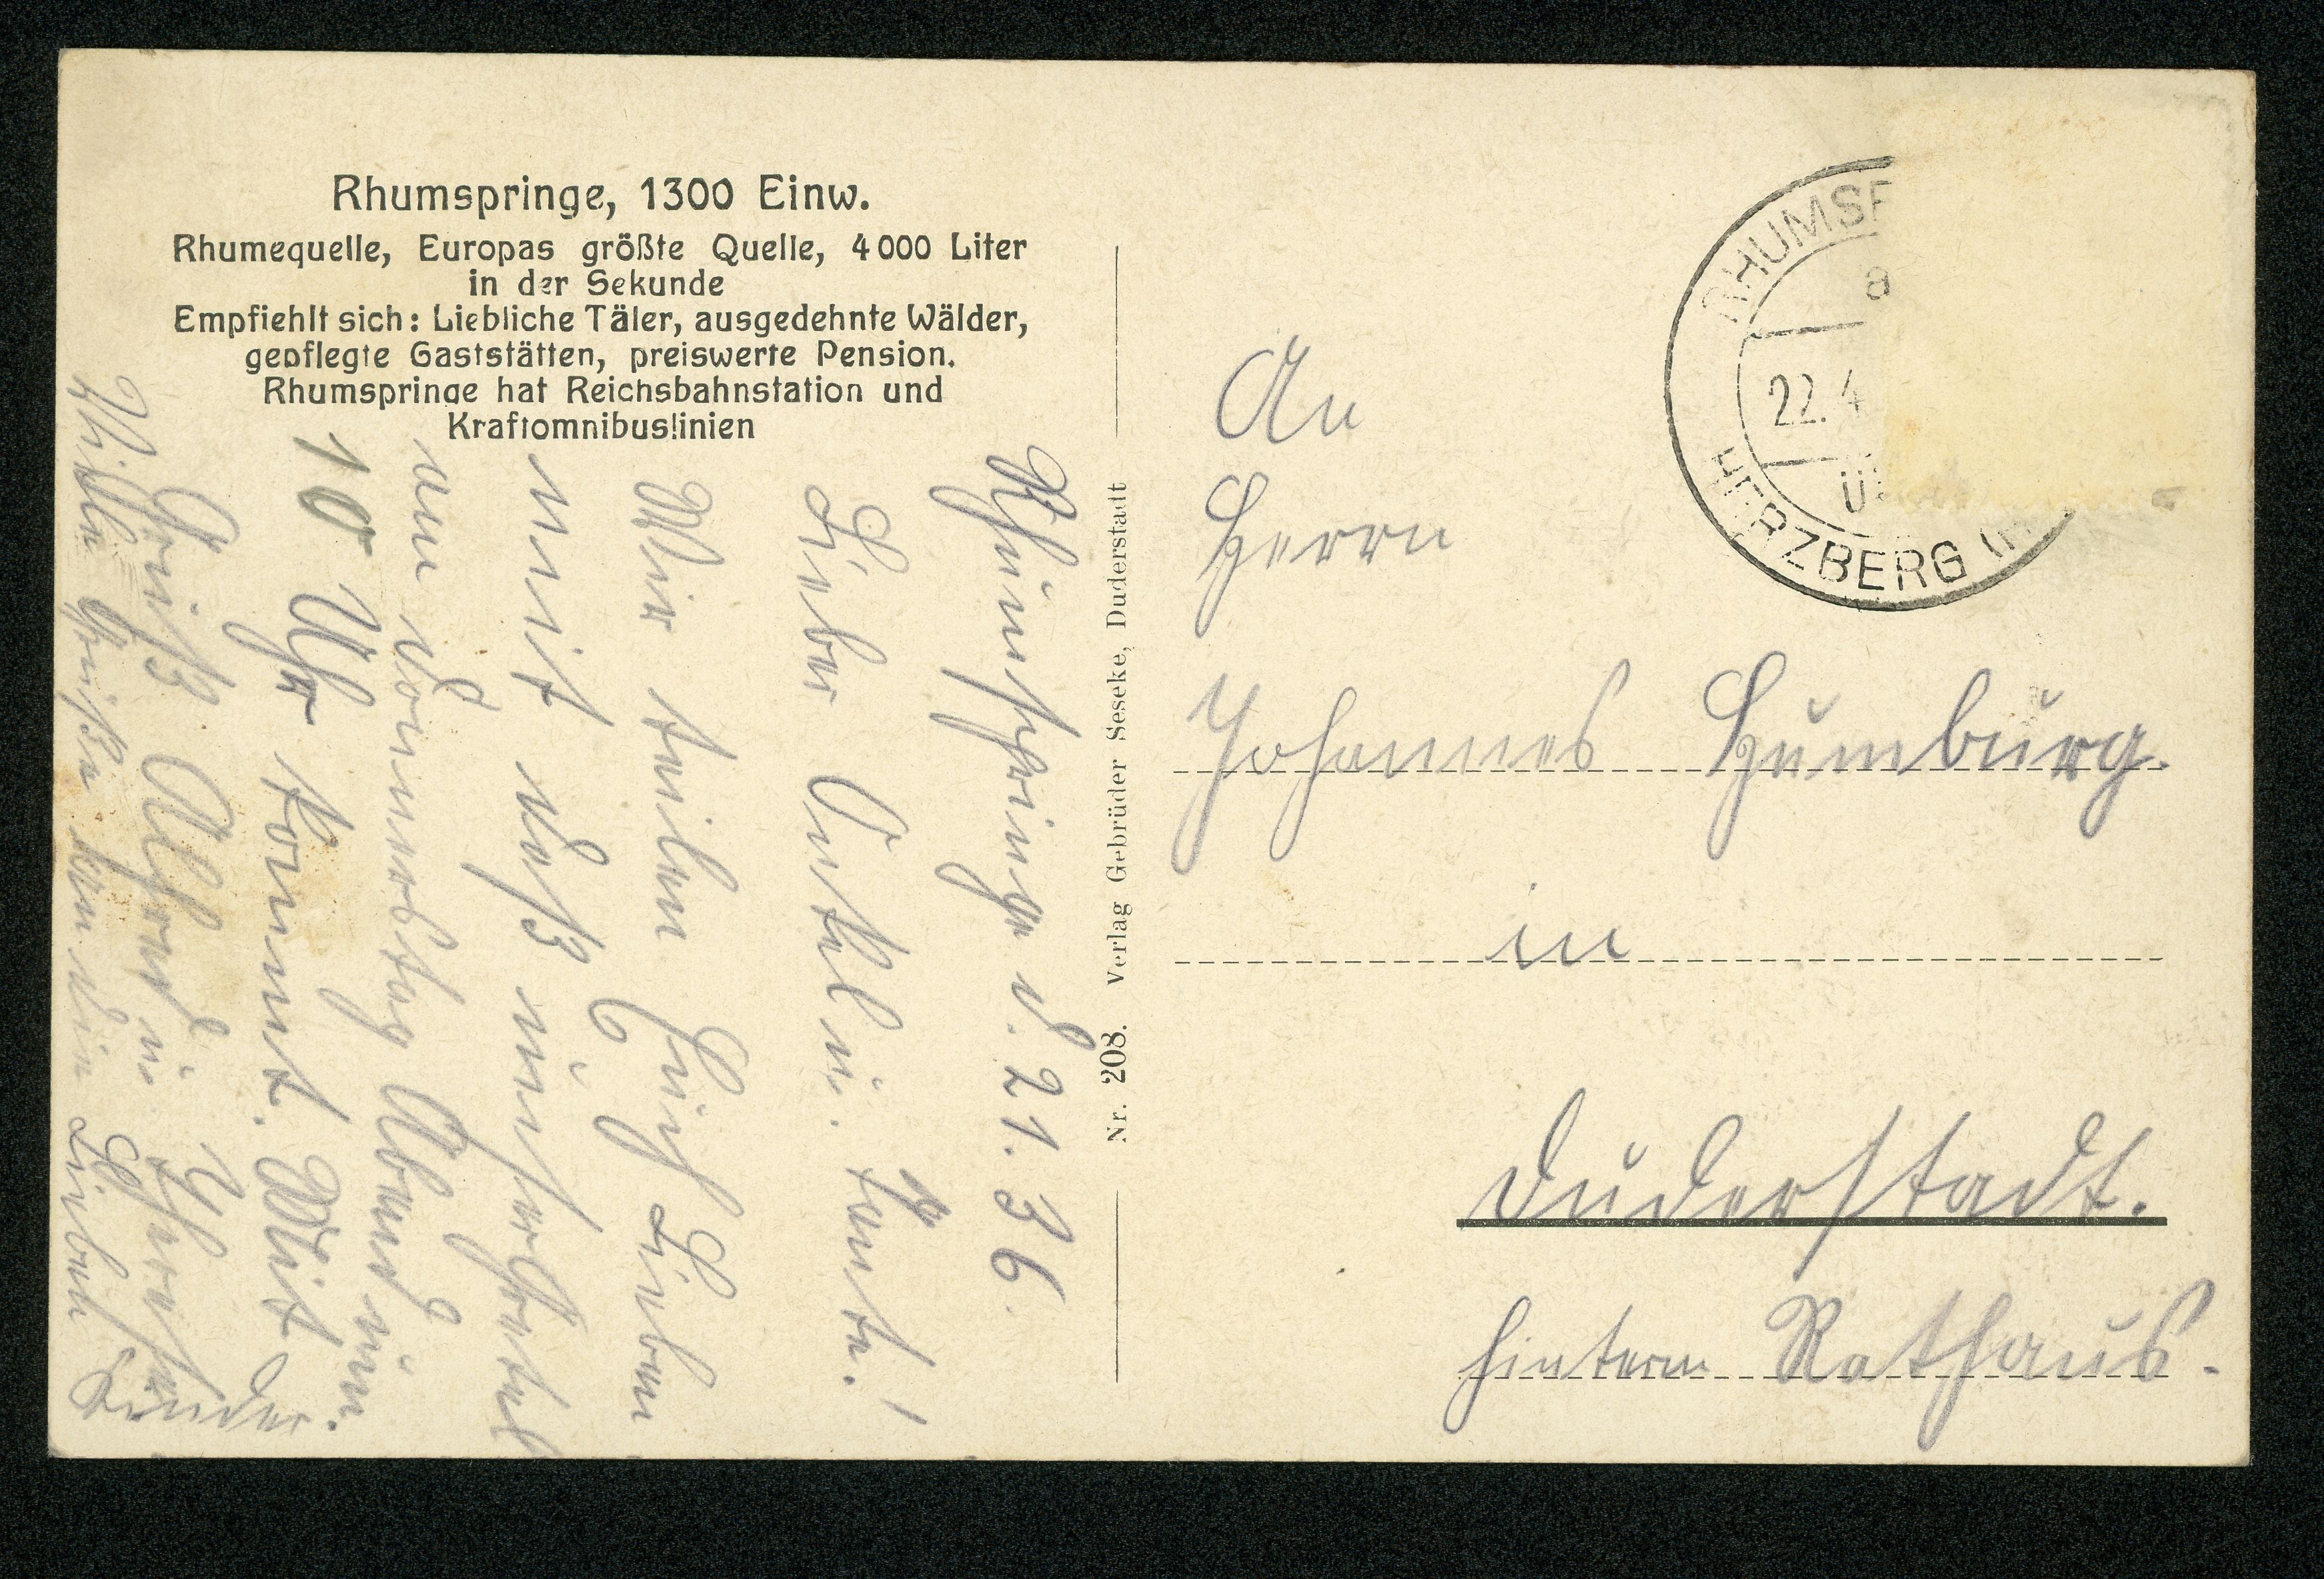 Rhumspringe, 1300 Einw.
Rhumequelle, Europas größte Quelle, 4000 Liter
in der Sekunde
Empfiehlt sich: Liebliche Täler, ausgedehnte Wälder,
gepflegte Gaststätten, preiswerte Pension.
Rhumspringe hat Reichsbahnstation und
Kraftomnibuslinien
Rhumspringe d. 21. 36.
Lieber Onkel u. Tante!
Wir teilen Euch Lieben
mit daß unser
am Donnerstag Abend um
10 Uhr kommt. Mit
Gruß Alfred u. Theresia
Viele Grüße von den Lieben Kinder.
Nr. 208. Verlag Gebrüder Seseke, Duderstadt
RHUMSP
a
22.4
Ü
HERZBERG (H
An
Herrn
Johannes Humburg.
in
Duderstadt.
hinterm Rathaus.